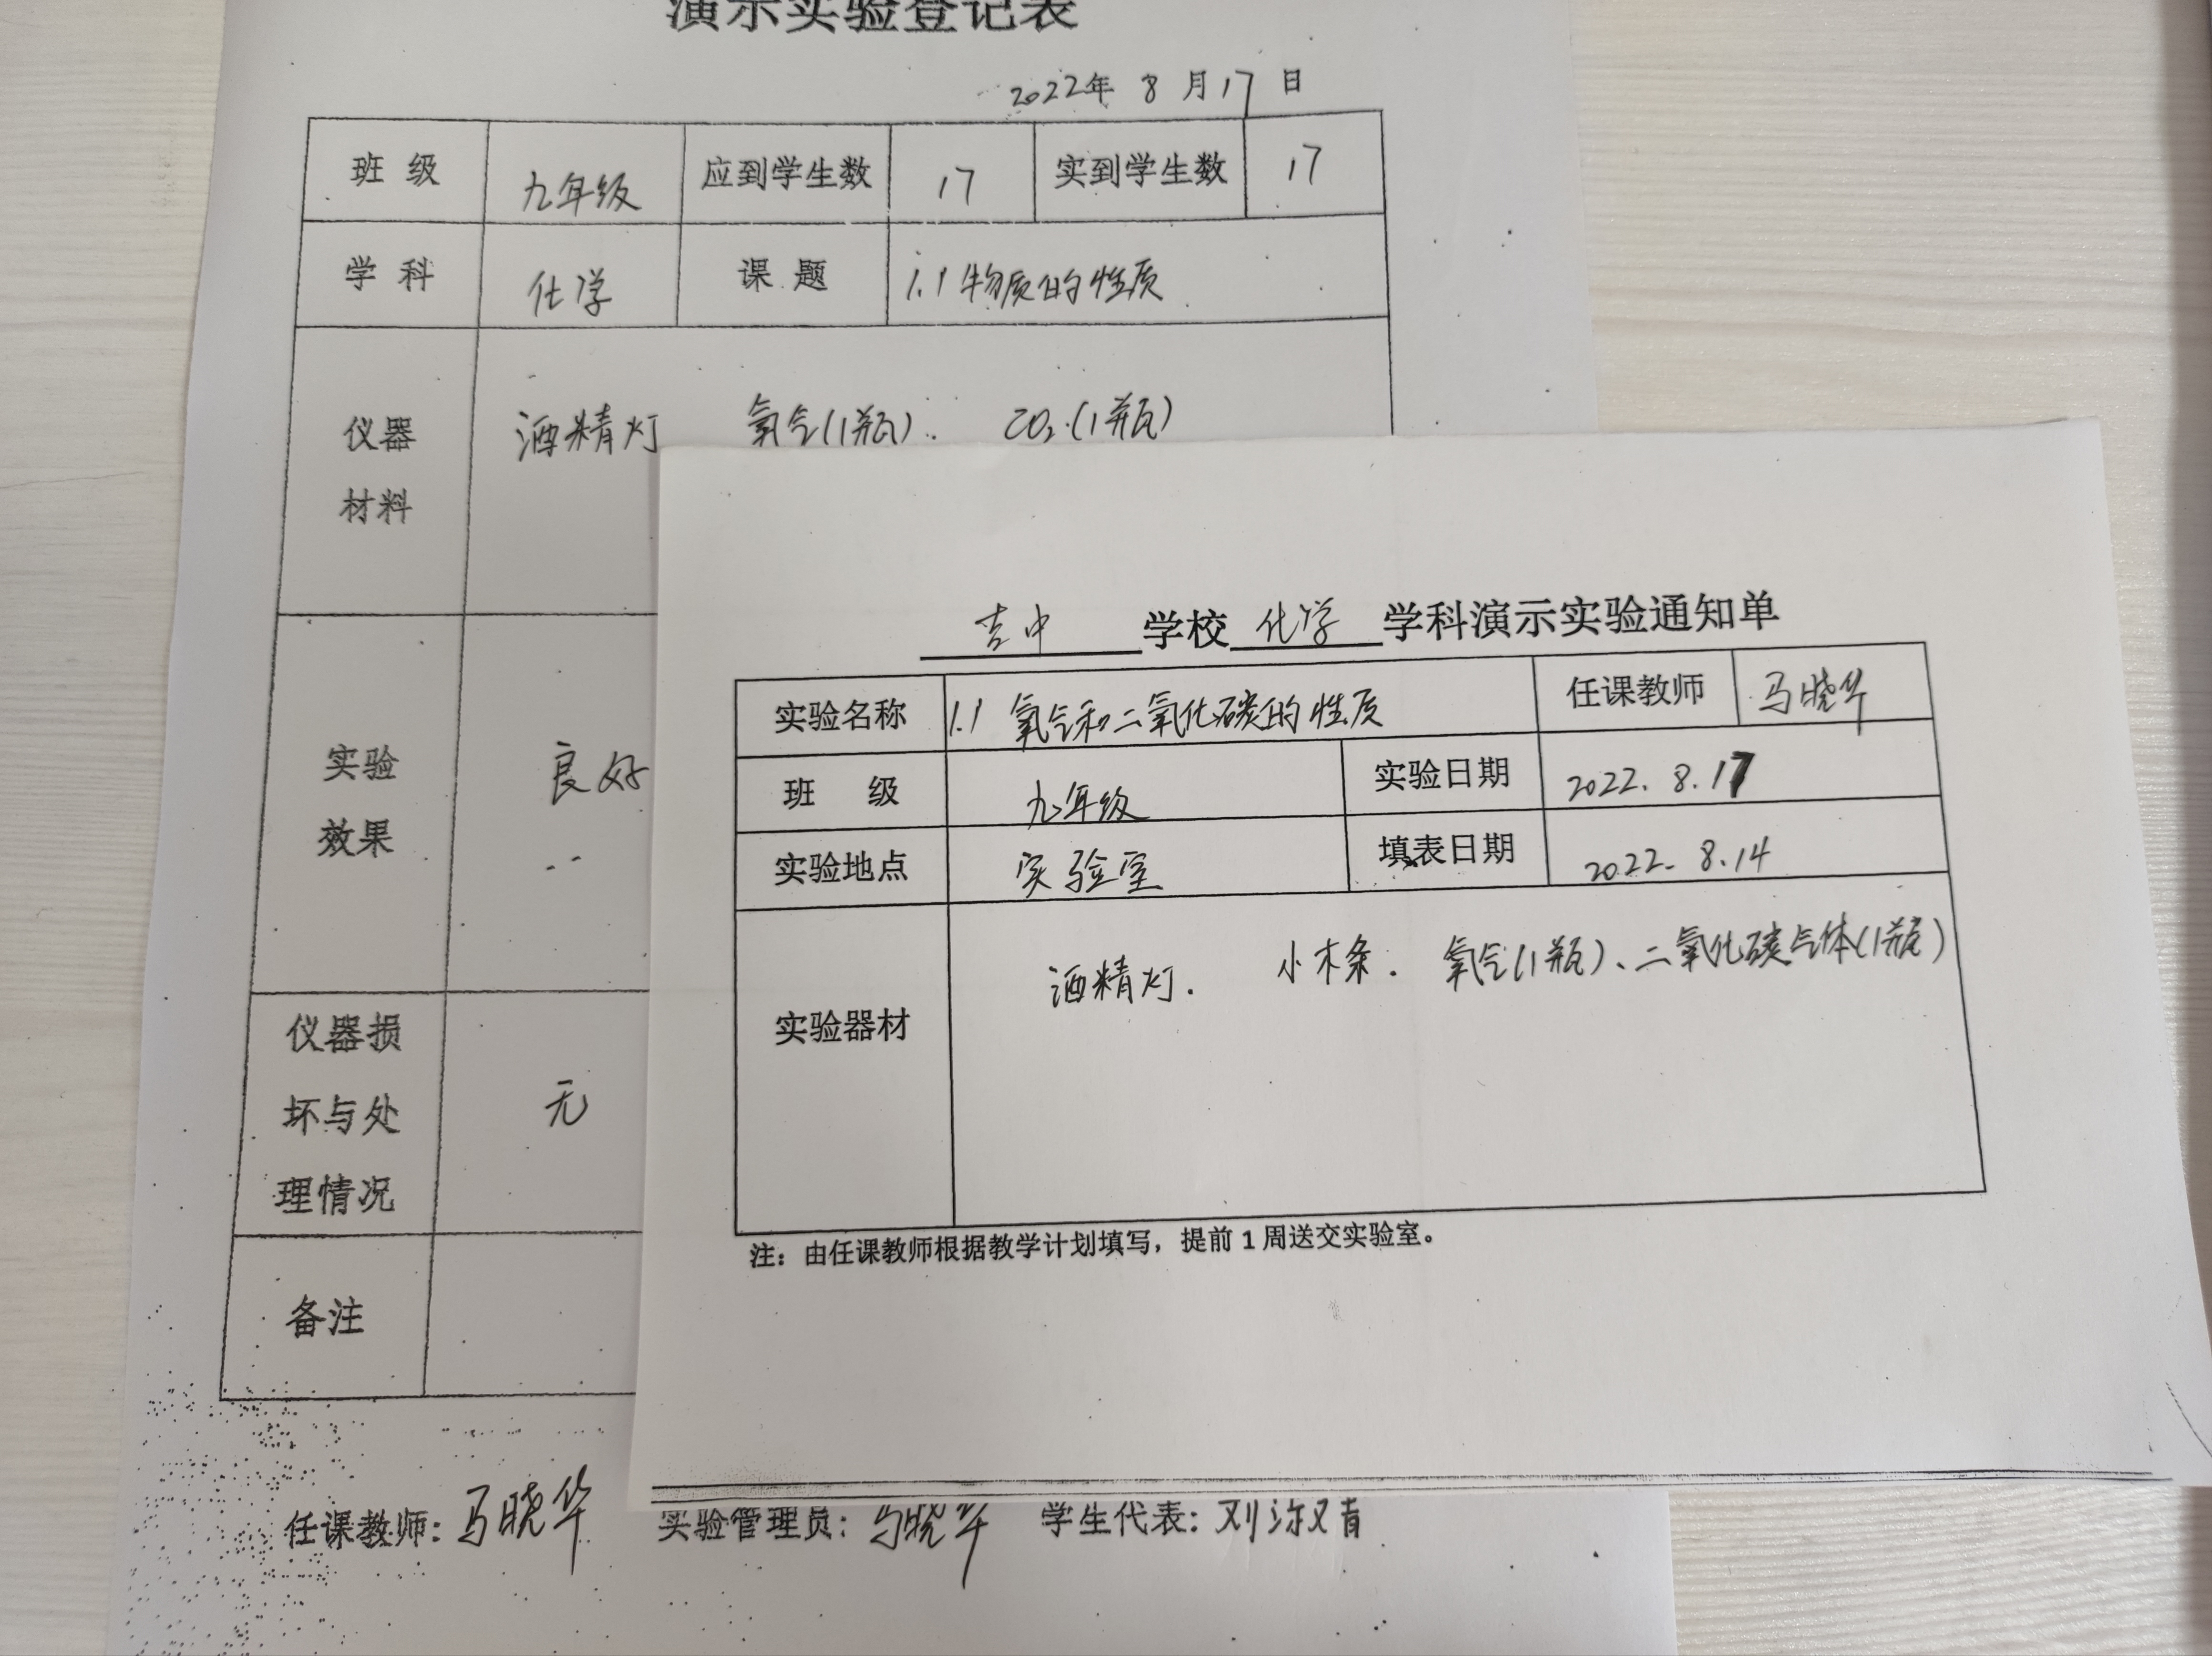 演示实验登记表
2022年 8 月 17 日
班 级 九年级 应到学生数 17 实到学生数 17
学 科 化学 课 题 1.1 物质的性质
仪器 材料 酒精灯 氧气(1瓶). CO₂.(1瓶)
实验 效果 良好
仪器损 坏与处 理情况 无
备注
任课教师: 马晓华 实验管理员: 马晓华 学生代表: 刘
吉中 学校 化学 学科演示实验通知单
实验名称 1.1 氧气和二氧化碳的性质 任课教师 马晓华
班 级 九年级 实验日期 2022. 8.17
实验地点 实验室 填表日期 2022. 8.14
实验器材 酒精灯. 小木条. 氧气(1瓶)、二氧化碳气体(1瓶)
注：由任课教师根据教学计划填写，提前 1 周送交实验室。